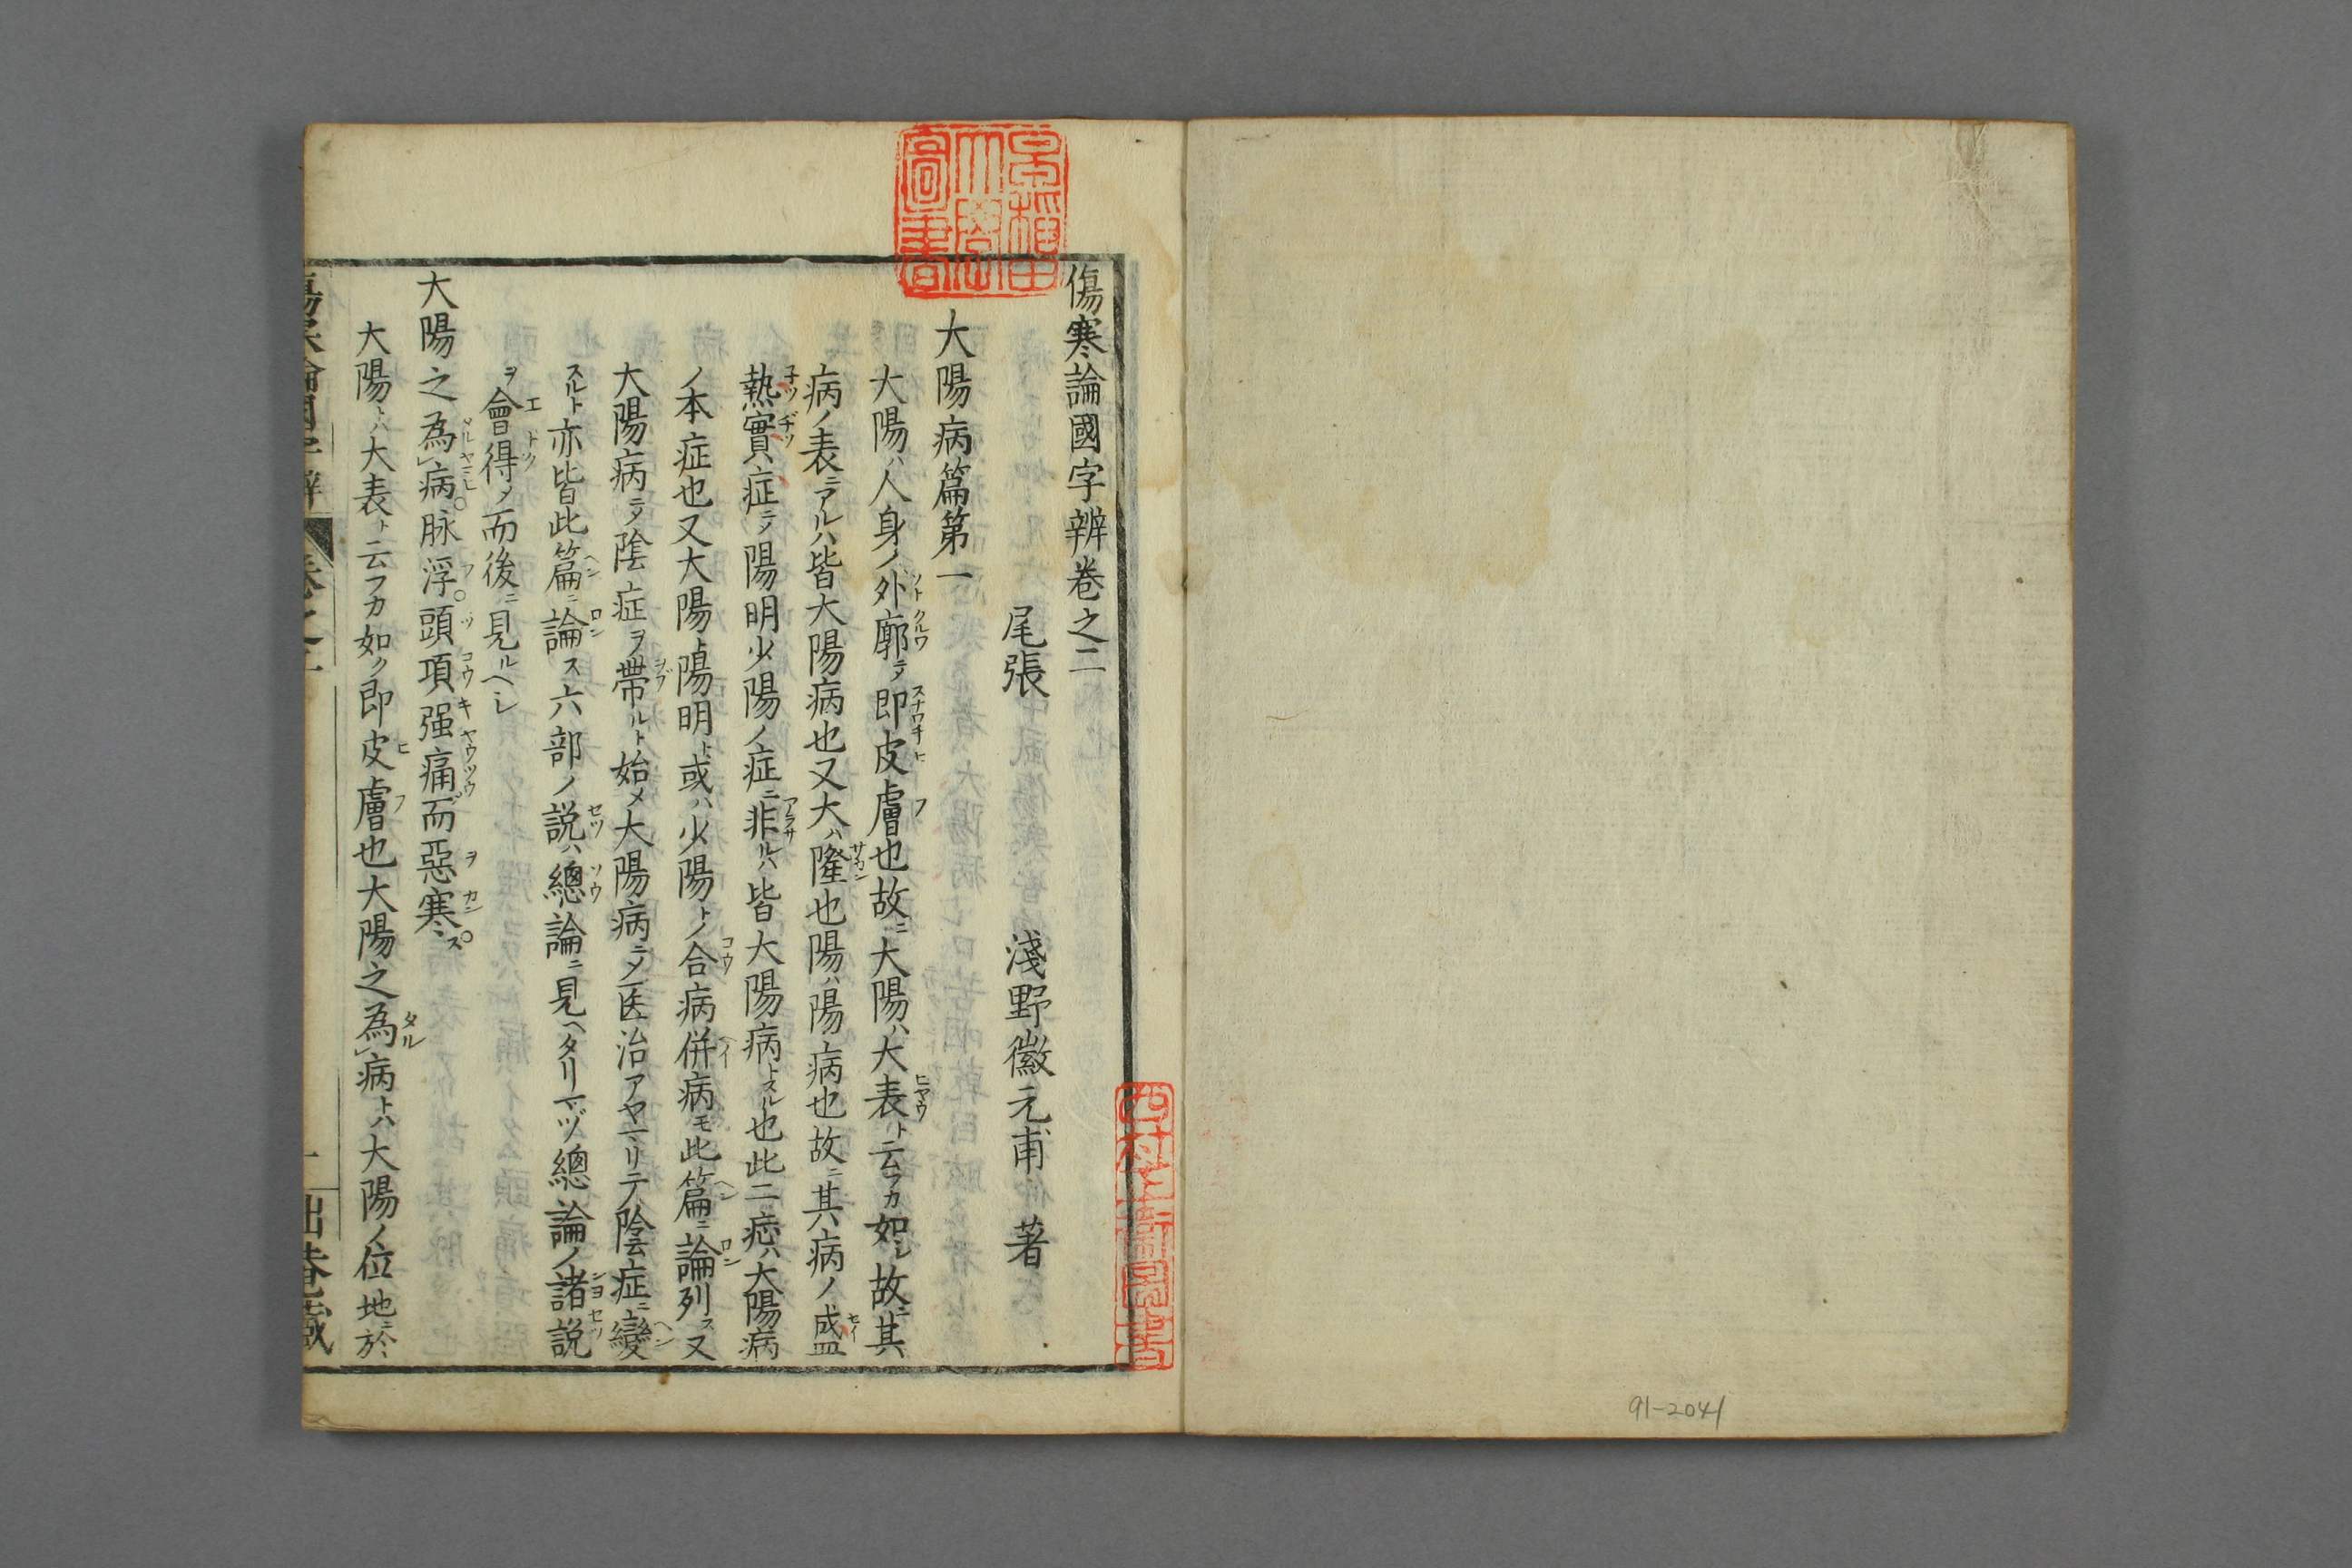 傷寒論國字辨卷之二
尾張 淺野徽元甫 著
大陽病篇第一
大陽ハ人身ノ外廓ニメ即皮膚也故ニ大陽ハ大表ト云フカ如シ故ニ其
病ノ表ニアルハ皆大陽病也又大ハ隆也陽ハ陽病也故ニ其病ノ盛
熱實症ニメ陽明少陽ノ症ニ非ルハ皆大陽病トスル也此二症ハ大陽病
ノ本症也又大陽ト陽明ト或ハ少陽トノ合病併病モ此篇ニ論列ス又
大陽病ニメ陰症ヲ帶ルト始メ大陽病ニメ医治アヤマリテ陰症ニ變
スルト亦皆此篇ニ論ス六部ノ説ハ總論ニ見ヘタリマヅ總論ノ諸説
ヲ會得メ而後ニ見ルヘシ
大陽之為病脉浮頭項强痛而惡寒ス
大陽トハ大表ト云フカ如ク即皮膚也大陽之為病トハ大陽ノ位地ニ於
早稲田大學圖書
91-2041